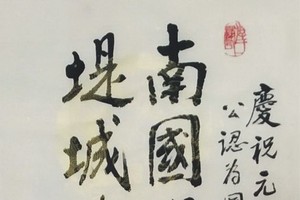 慶祝元
公認為
南國
堤城